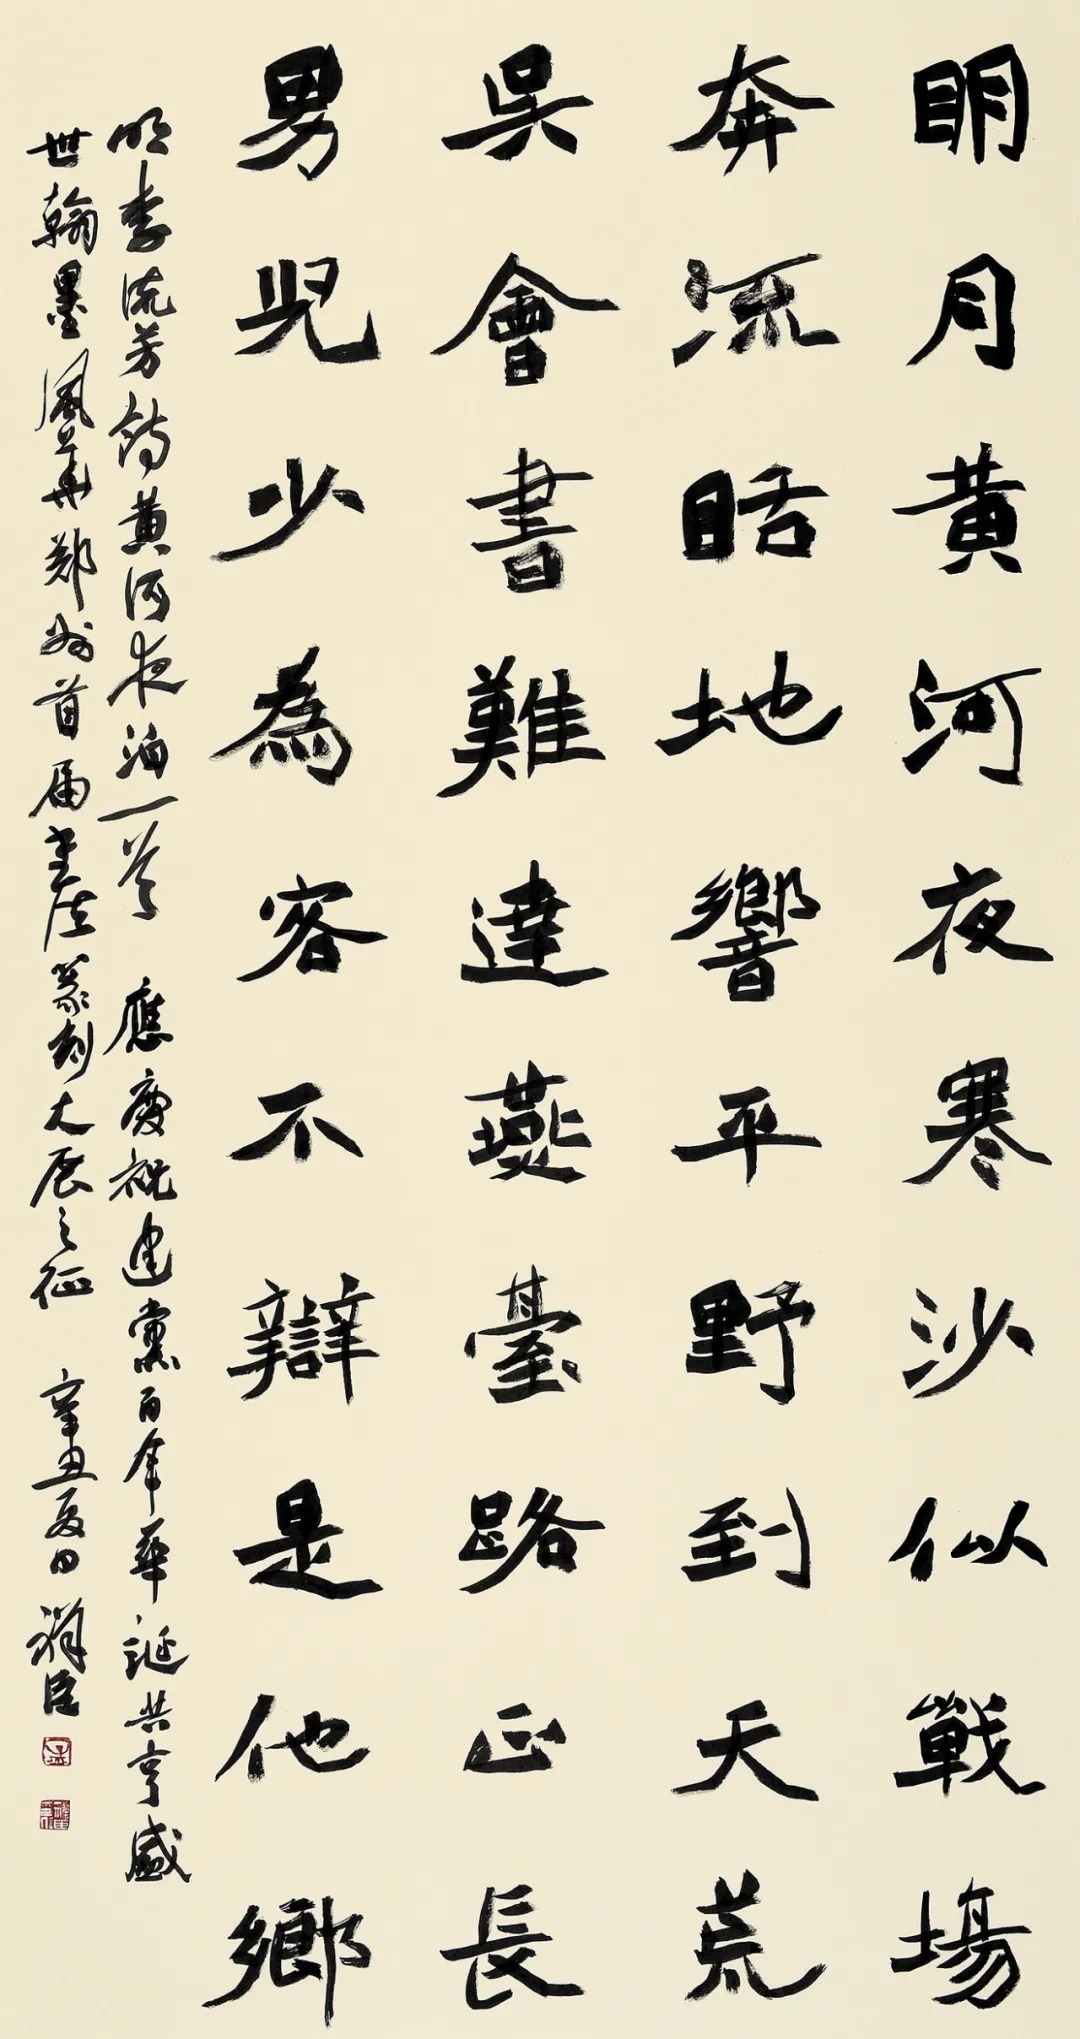 明月黄河夜寒沙似戰場
奔流聒地響平野到天荒
吳會書難達燕臺路正長
男兒少為客不辯是他鄉
明李流芳詩黄河夜泊一首 應慶祝建黨百年華誕共享盛
世翰墨風華鄭州首届書法篆刻大展之征 辛丑夏日 祥臣